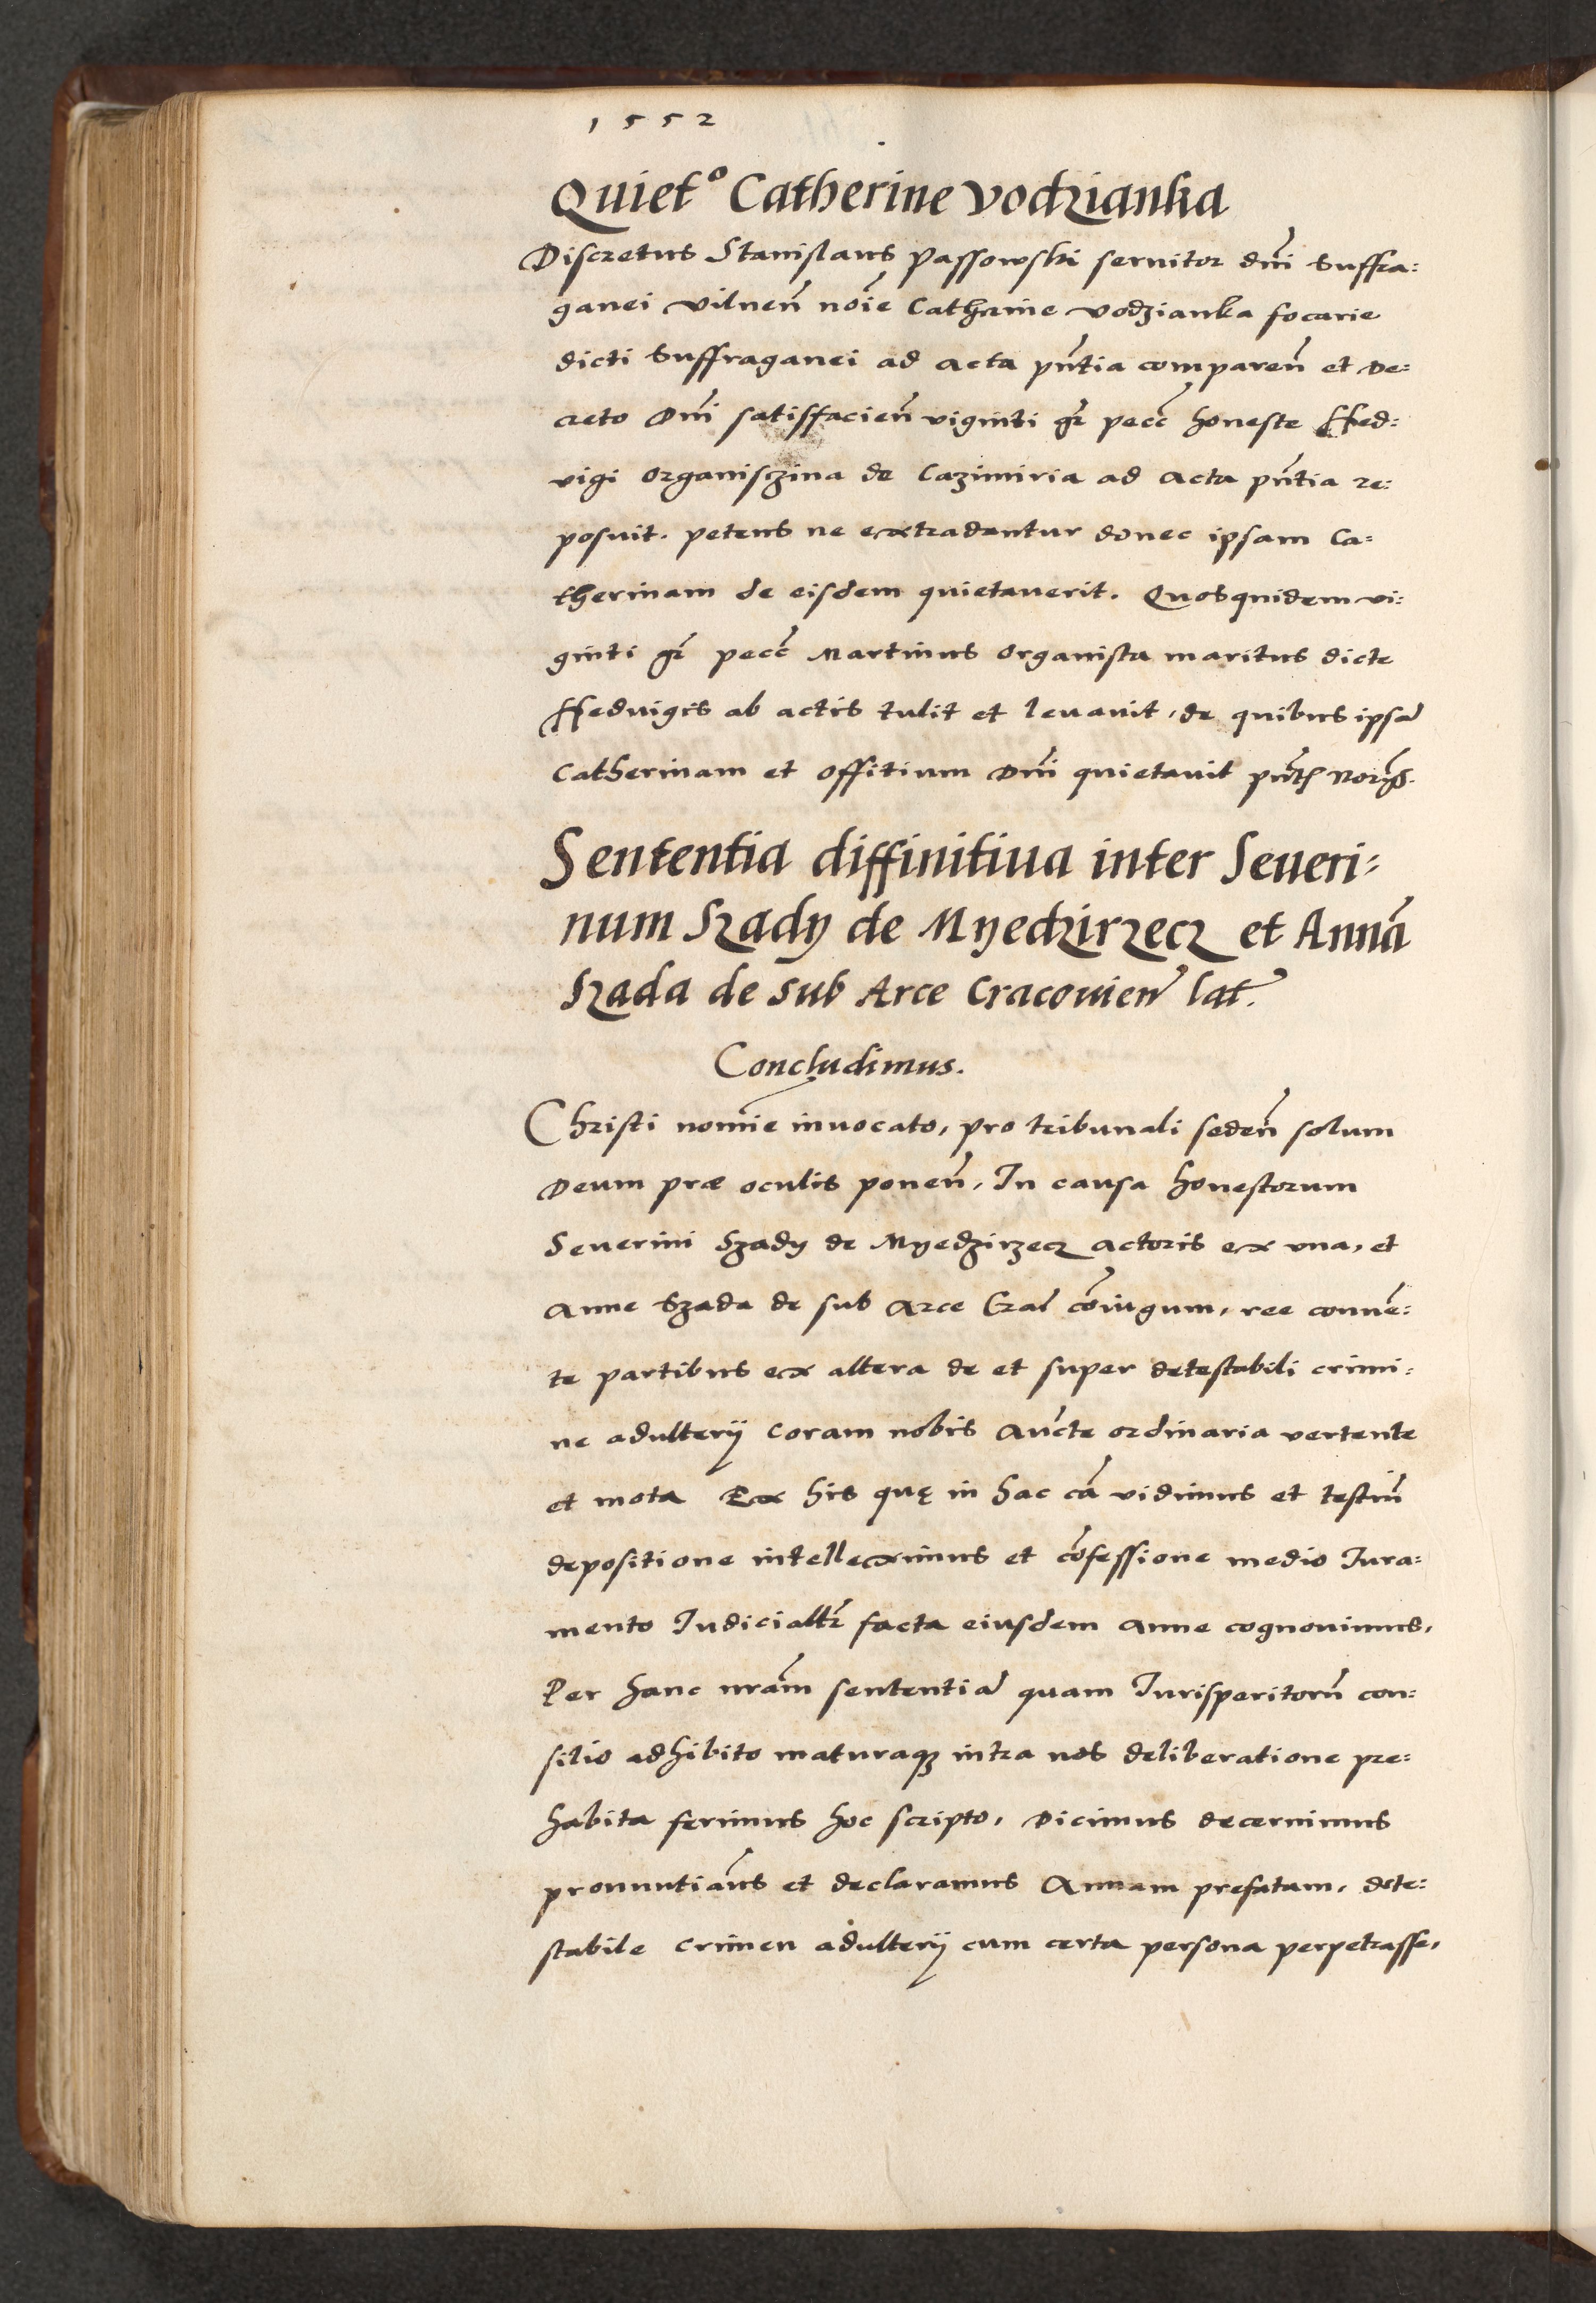 1552
Quiet° Catherine Vodzianka
Discretus Stanislaus Passowski seruitor dn̄i Suffra:
ganei Vilnen̄ nōie Cathrine Vodzianka focarie
dicti Suffraganei ad acta pn̄tia comparen̄ et De:
creto Dn̄i satisffacien̄ viginti gr̄ pecc̄ honeste Hed:
vigi Organisczina de Cazimiria ad acta pn̄tia re:
posuit. petens ne extradantur donec ipsam Ca:
therinam de eisdem quietauerit. Quosquidem vi:
ginti gr̄ pecc̄ Martinus Organista maritus dicte
Hedvigis ab actis tulit et leuauit, de quibus ipsā
Catherinam et Offitium Dn̄i quietauit pn̄t
Sententia diffinitiua inter Seueri:
num Szady de Myedzirzecz et Annā
Szada de sub Arce Cracouien̄ lat̄.
Concludimus.
Christi nomīe inuocato, pro tribunali seden̄ solum
Deum præ oculis ponen̄, In causa honestorum
Seuerini Szady de Myedzirzecz actoris ex vna, et
Anne Szada de sub Arce Cral cōiugum, ree conuē:
te partibus ex altera de et super detestabili crimi:
ne adulterij coram nobis auc̄te ordinaria vertente
et mota Ex his quę in hac cā vidimus et testiū
depositione intelleximus et cōfessione medio Iura:
mento Iudicialtr̄ facta eiusdem Anne cognouimus,
Per hanc nrām sententiā quam Iurisperitorū con:
silio adhibito maturaqꝫ intra nos deliberatione pre:
habita ferimus hoc scripto, Dicimus decernimus
pronuntiam̄s et declaramus Annam prefatam, dete:
stabile crimen adulterij cum certa persona perpetrasse,